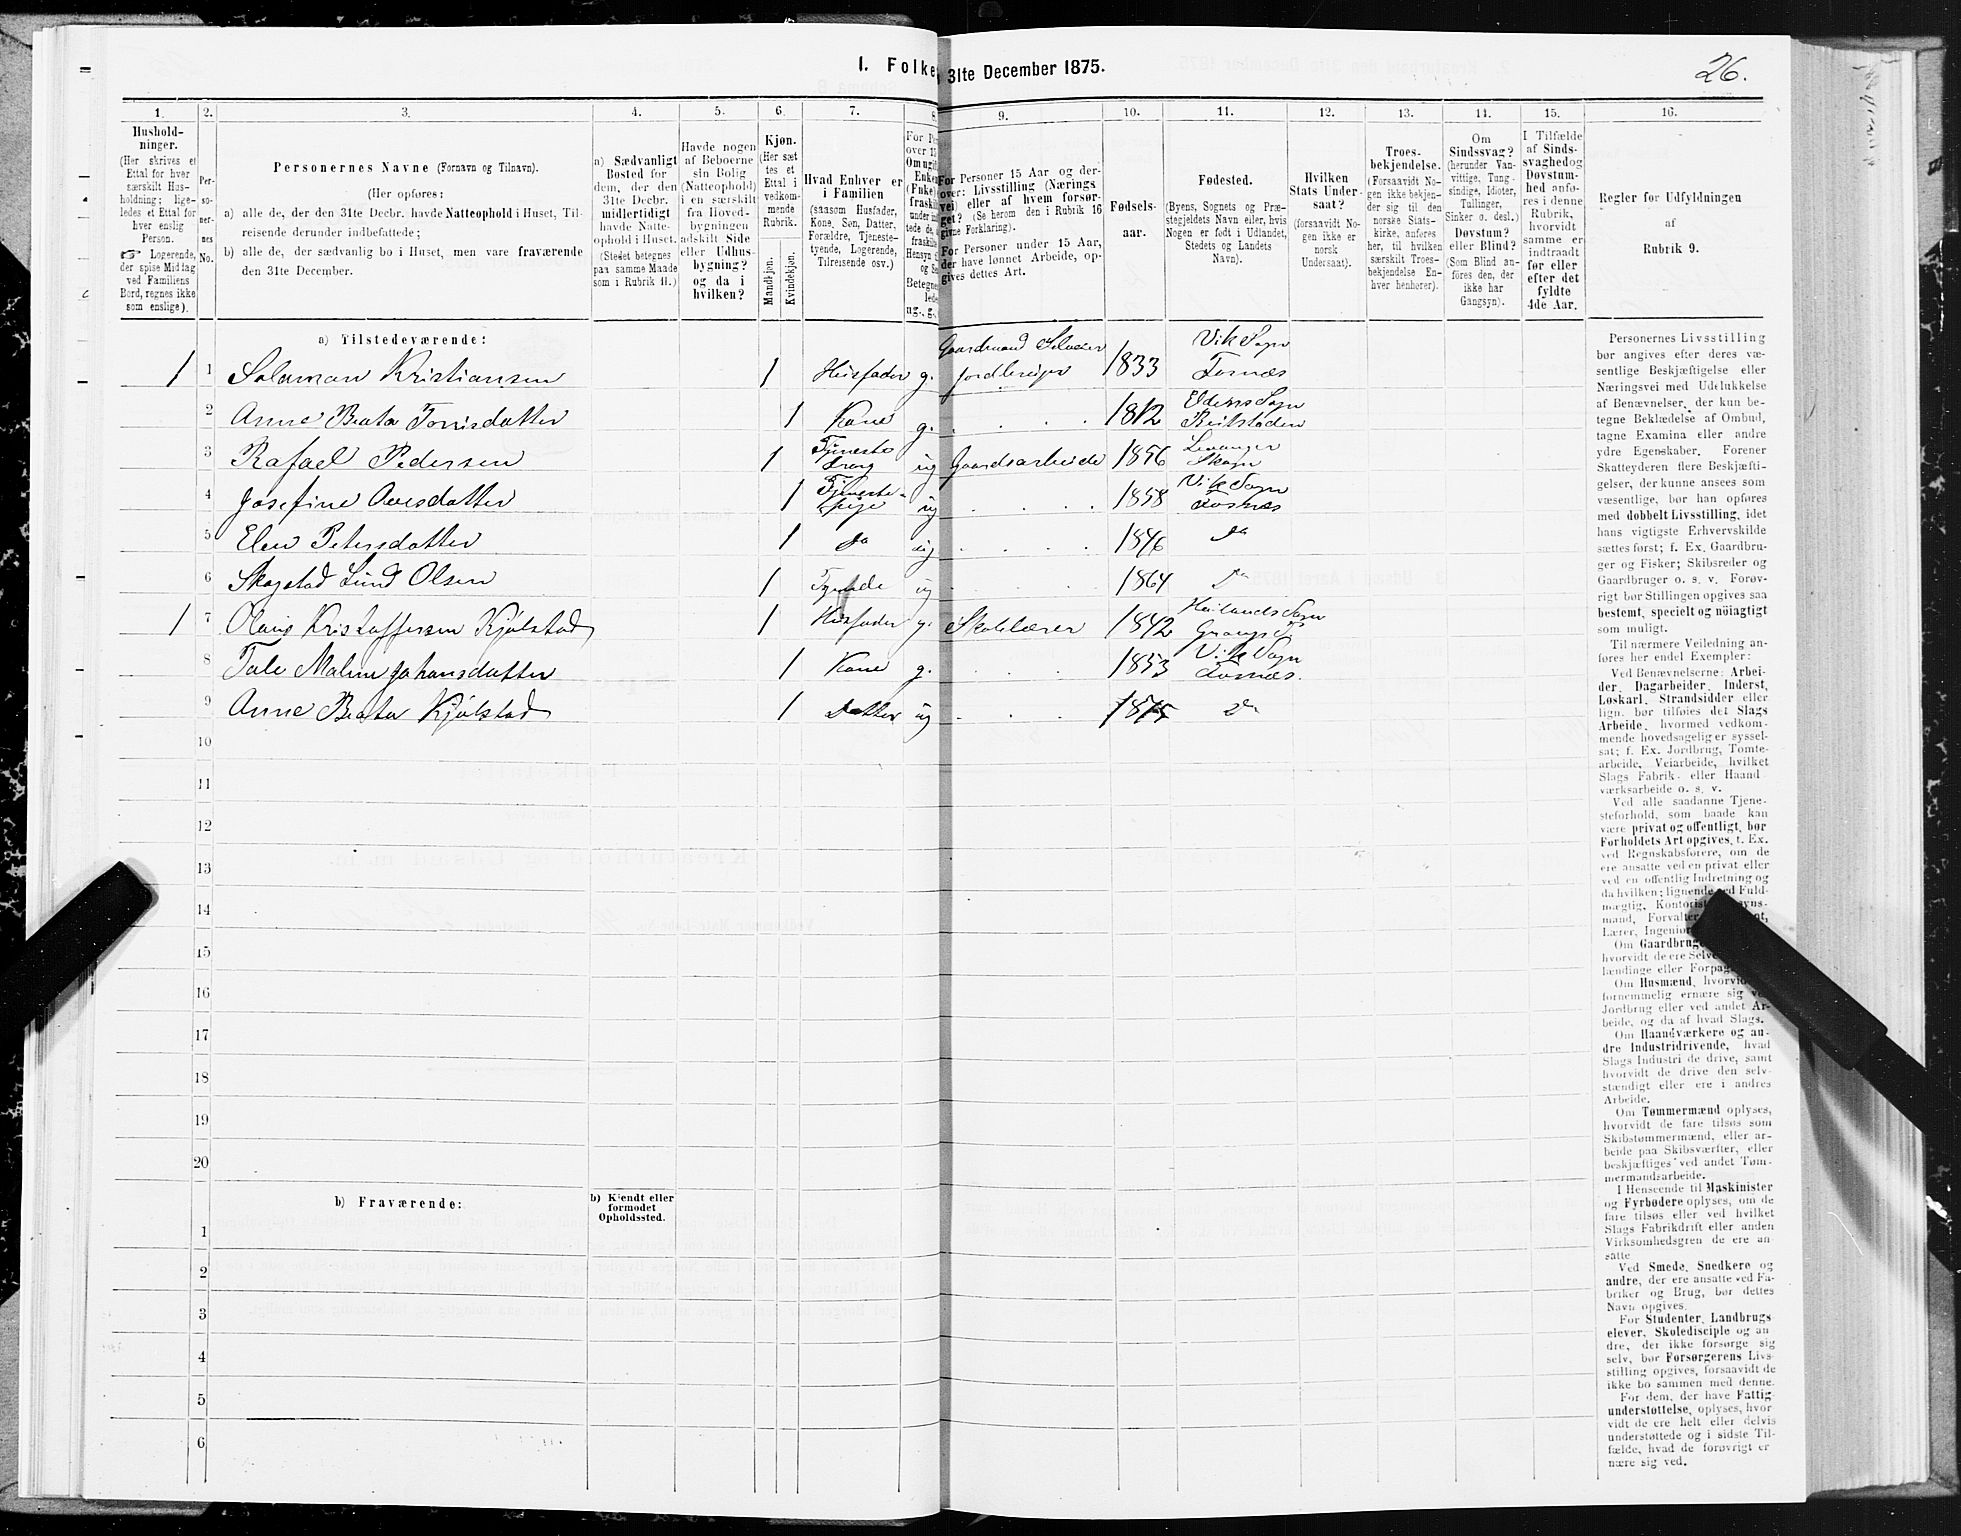 I. Folke
31te December 1875.
26.
1.
2.
3.
4.
5.
6.
7.
8.
9.
10.
11.
12.
13.
14.
15.
16.
Hushold-
ninger.
(Her skrives et
Ettal for hver
særskilt Hus-
holdning; lige-
ledes et Ettal for
hver enslig
Person.
☞ Logerende,
der spise Middag
ved Familiens
Bord, regnes ikke
som enslige).
Per-
so-
ner-
nes
No.
Personernes Navne (Fornavn og Tilnavn).
(Her opføres:
a) alle de, der den 31te Decbr. havde Natteophold i Huset, Til-
reisende derunder indbefattede;
b) alle de, der sædvanlig bo i Huset, men vare fraværende
den 31te December.
a) Sædvanligt
Bosted for
dem, der den
31te Decbr.
midlertidigt
havde Natte-
ophold i Huset.
(Stedet betegnes
paa samme Maade
som i Rubrik 11.)
Havde nogen
af Beboerne
sin Bolig
(Natteophold)
i en særskilt
fra Hoved-
bygningen
adskilt Side
eller Udhus-
bygning?
og da i
hvilken?
Kjøn.
(Her sæt
tes et
Ettal i
vedkom-
mende
Rubrik.
Mandkjøn.
Kvindekjøn.
Hvad Enhver er
i Familien
(saasom Husfader,
Kone, Søn, Datter,
Forældre, Tjeneste-
tyende, Logerende,
Tilreisende osv.)
For Pe
over 15
Om ugift
Enken
(Fnke)
fraskil
under ind
tede de, s
fraskilt
Hensyn t
og Se
Betegne
lede
ug., g.,
For Personer 15 Aar og der-
over: Livsstilling (Nærings
vei) eller af hvem forsør-
get? (Se herom den i Rubrik 16
givne Forklaring).
For Personer under 15 Aar,
der have lønnet Arbeide, op-
gives dettes Art.
Fødsels-
aar.
Fødested.
(Byens, Sognets og Præ-
stegjeldets Navn eller, hvis
Nogen er født i Udlandet,
Stedets og Landets
Navn).
Hvilken
Stats Under-
saat?
(forsaavidt No-
gen ikke er
norsk
Undersaat).
Troes-
bekjendelse.
(Forsaavidt No-
gen ikke bekjen-
der sig til den
norske Stats-
kirke, anføres
her, til hvilken
særskilt Troes-
bekjendelse En-
hver henhører).
Om
Sindssvag?
(herunder Van-
vittige, Tung-
sindige, Idioter,
Tullinger,
Sinker o. desl.)
Døvstum?
eller Blind?
(Som Blind an-
føres den, der
ikke har
Gangsyn).
I Tilfælde
af Sinds-
svaghed og
Døvstum-
hed anfø-
res i denne
Rubrik,
hvorvidt
samme er
indtraadt
før eller
efter det
fyldte
4de Aar.
Regler for Udfyldningen
af
Rubrik 9.
a) Tilstedeværende:
1 1 Salamon Kristiansen 1 Husfader g. Gaardmand Selveier Jordbruger 1833 Vik Sogn Fosnæs
2 Anne Beata Tonisdatter 1 Kone g. 1812 Eldens Sogn Beitstaden
3 Rafael Pedersen 1 Tjeneste dreng ug Gaardsarbeide 1856 Levanger Skogn
4 Josefine Avesdatter 1 Tjeneste- pige ug 1858 Vik Sogn Fosnæs
5 Elen Petersdatter 1 do ug 1846 do
6 Skogstad Lund Olsen 1 Tyende ug 1864 Do
1 7 Olaus Kristoffersen Kjølstad 1 Husfader g. Skolelærer 1842 Grongs
8 Tale Maline Johansdatter 1 Kone g. 1853 Vik Sogn Fosnæs.
9 Anne Beata Kjølstad 1 Datter ug 1875 Do
10
11
12
13
14
15
16
17
18
19
20
b) Fraværende:
b) Kjendt eller
formodet
Opholdssted.
1
2
3
4
5
6
Personernes Livsstilling
bør angives efter deres væ-
sentlige Beskjæftigelse eller
Næringsvei med Udelukkelse
af Benævnelser, der kun be-
tegne Beklædelse af Ombud,
tagne Examina eller andre
ydre Egenskaber. Forener
Skatteyderen flere Beskjæfti-
gelser, der kunne ansees som
væsentlige, bør han opføres
med dobbelt Livsstilling, idet
hans vigtigste Erhvervskilde
sættes først; f. Ex. Gaardbru-
ger og Fisker; Skibsreder og
Gaardbruger o. s. v. Forøv-
rigt bør Stillingen opgives saa
bestemt, specielt og nöiagtigt
som muligt.
Til nærmere Veiledning an-
føres her endel Exempler:
Ved Benævnelserne: Arbei-
der, Dagarbeider, Inderst,
Løskarl, Strandsidder eller
lign. bør tilføies det Slags
Arbeide, hvormed vedkom-
mende hovedsagelig er syssel-
sat; f. Ex. Jordbrug, Tomte-
arbeide, Veiarbeide, hvilket
Slags Fabrik- eller Haand
værksarbeide o. s. v.
Ved alle saadanne Tjene-
steforhold, som baade kan
være privat og offentligt, bør
Forholdets Art opgives, t. Ex.
ved Regnskabsførere, om de
ere ansatte ved en privat eller
ved en offentlig Indretning og
da hvilken; lignende ved Fuld-
mægtig, Kontorist
mand, Forvalter
Lærer, Ingeniør
Om Gaardbruge
hvorvidt de ere Selve
lændinge eller Forpag
Om Husmænd, hvorvid
fornemmelig ernære sig ve
Jordbrug eller ved andet Ar-
beide, og da af hvad Slags.
Om Haandværkere og an-
dre Industridrivende, hvad
Slags Industri de drive, samt
hvorvidt de drive den selv-
stændigt eller ere i andres
Arbeide.
Om Tømmermænd oplyses,
hvorvidt de fare tilsøs som
Skibstømmermænd, eller ar-
beide paa Skibsværfter, eller
beskjæftiges ved andet Tøm-
mermandsarbeide.
I Henseende til Maskinister
og Fyrbødere oplyses, om de
fare tilsøs eller ved hvilket
Slags Fabrikdrift eller anden
Virksomhedsgren de ere an-
satte
Ved Smede, Snedkere og
andre, der ere ansatte ved Fa-
briker og Brug, bør dettes
Navn opgives.
For Studenter, Landbrugs
elever, Skoledisciple og an
dre, der ikke forsørge sig
selv, bør Forsørgerens Livs-
stilling opgives, forsaavidt de
ikke bo sammen med denne.
For dem, der have Fattig
understøttelse, oplyses, hvor
vidt de ere helt eller delvis
understøttede og i sidste Til-
fælde, hvad de forøvrigt er
nære sig ved.